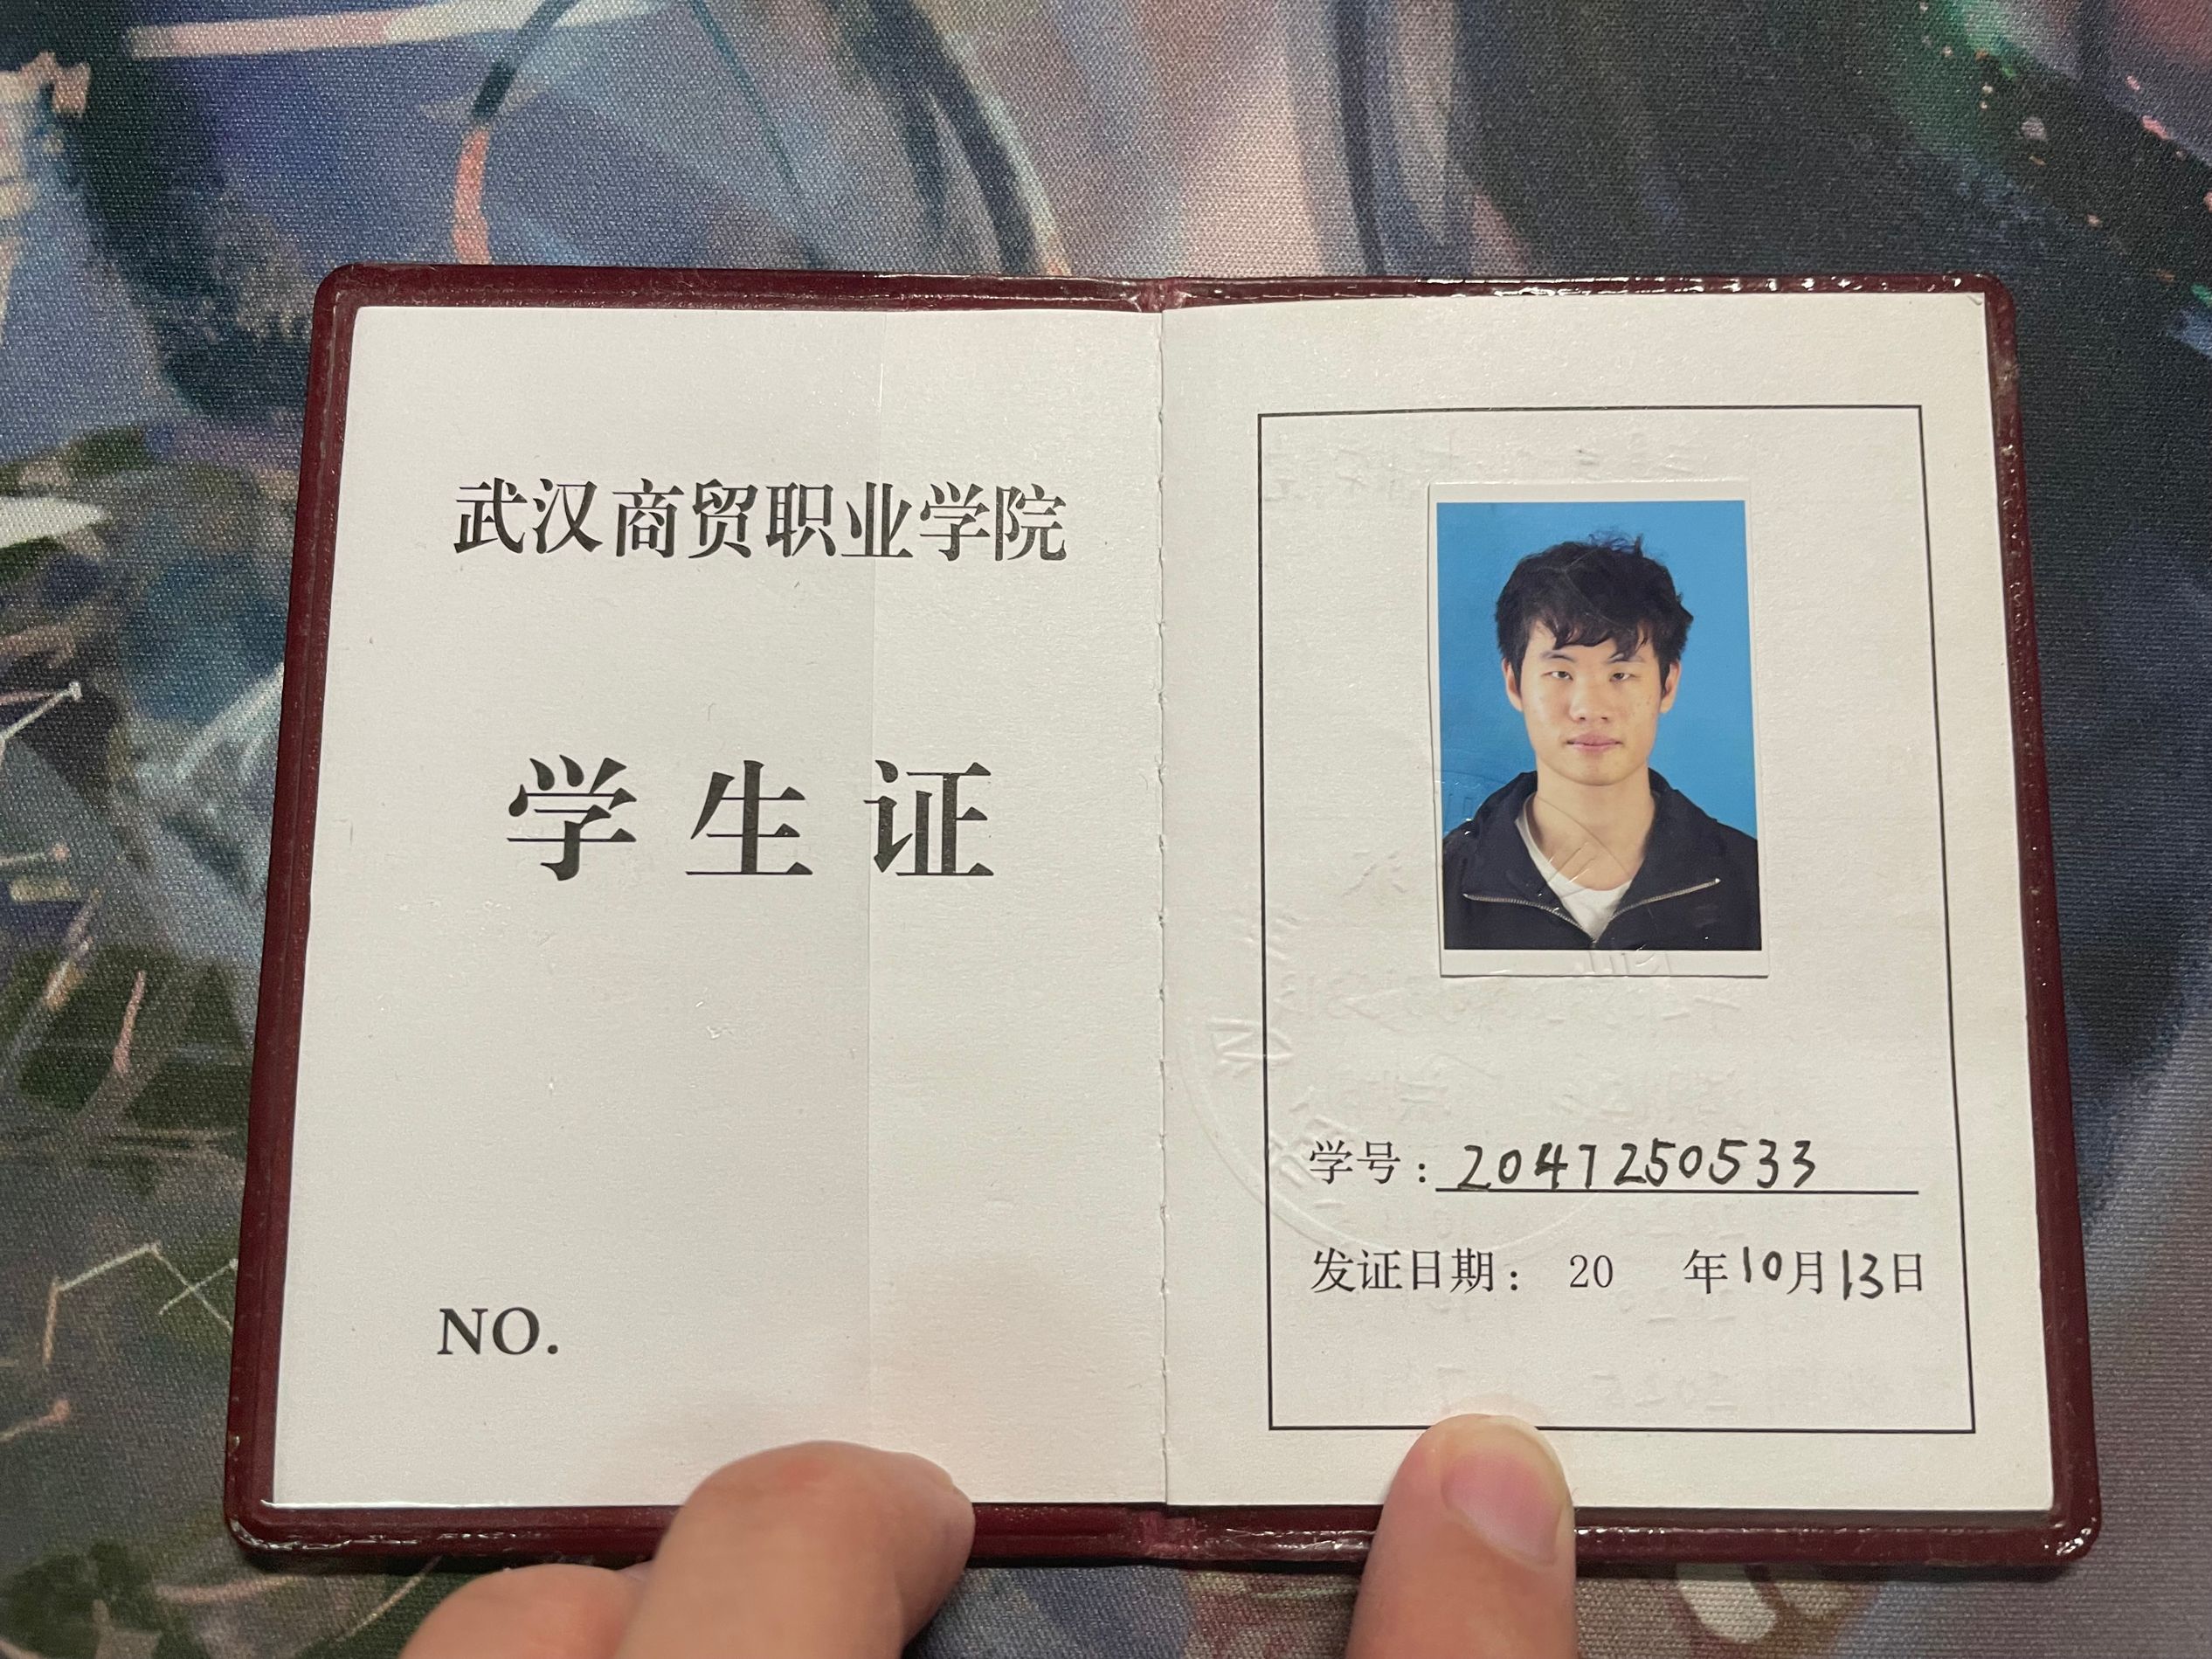 武汉商贸职业学院
学生证
NO.
学号：2041250533
发证日期： 20 年10月13日